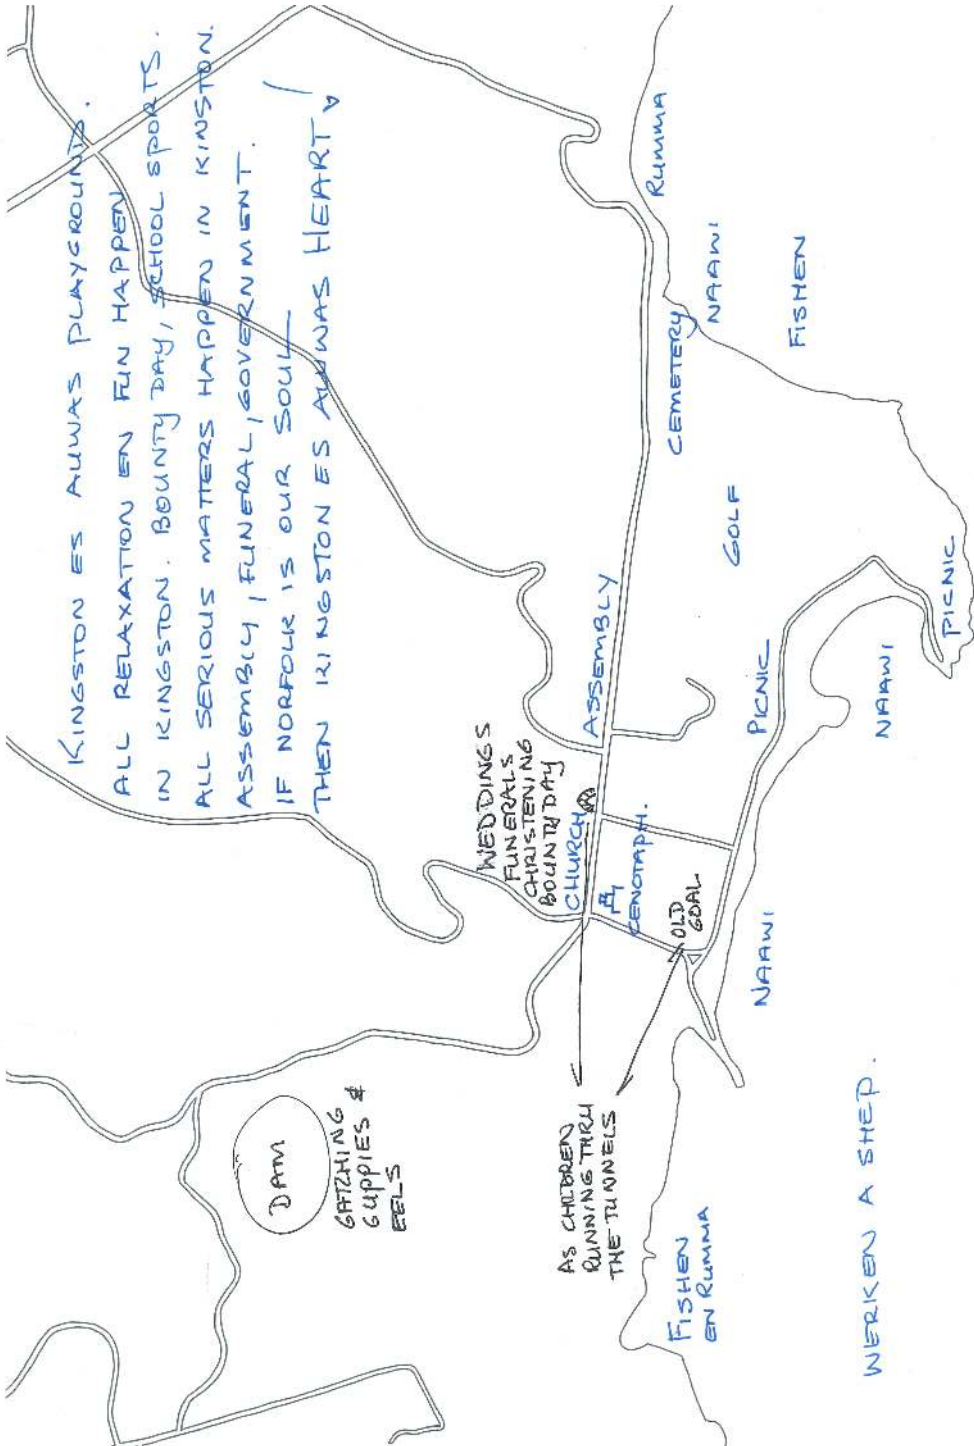 KINGSTON ES AUWAS PLAYGROUND.
ALL RELAXATION EN FUN HAPPEN
IN KINGSTON. BOUNTY DAY, SCHOOL SPORTS.
ALL SERIOUS MATTERS HAPPEN IN KINSTON.
ASSEMBLY, FUNERAL, GOVERNMENT.
IF NORFOLK IS OUR SOUL
THEN KINGSTON ES AUWAS HEART
DAM
CATCHING
GUPPIES &
EELS
WEDDINGS
FUNERALS
CHRISTENING
BOUNTY DAY
CHURCH
ASSEMBLY
CENOTAPH.
OLD
GOAL
AS CHILDREN
RUNNING THRU
THE TUNNELS
CEMETERY
RUMMA
NAAWI
FISHEN
GOLF
PICNIC
NAAWI
PICNIC
NAAWI
FISHEN
EN RUMMA
WERKEN A SHEP.